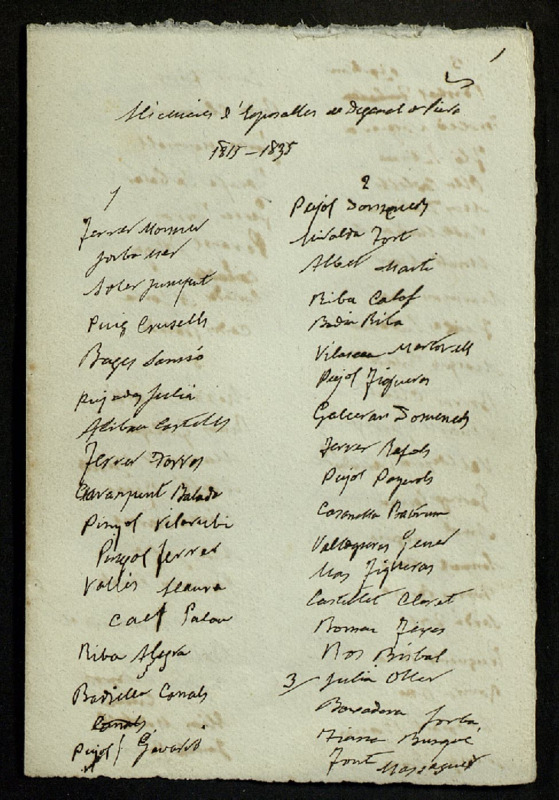 1
Llicencies d'Esposalles de Deganat de Piera
1815-1835
1
Ferrer Monner
Jorba Mer
Soler Junyent
Puig Cruselles
Bages Sansó
Pujadas Julia
Alibau Castells
Ferrer Torres
Claramunt Balada
Pinyol Vilarubi
Pinyol Ferrer
Valles Maura
Calf Palau
Riba Alegra
Badiella Canals
Canals
Pujol Gavarró
2
Pujol Domenech
Miralda Font
Albet Marti
Riba Calaf
Badia Riba
Vilaseca Martorell
Pujol Figueras
Galceran Domenech
Ferrer Rafols
Pujol Poquols
Casanella Batlle
Vallespinosa Jener
Mas Figueras
Castellet Claret
Romeu Feyes
Ros Bisbal
3 Julia Oller
Boxadera Jorba
Busqué
Font Massaguer